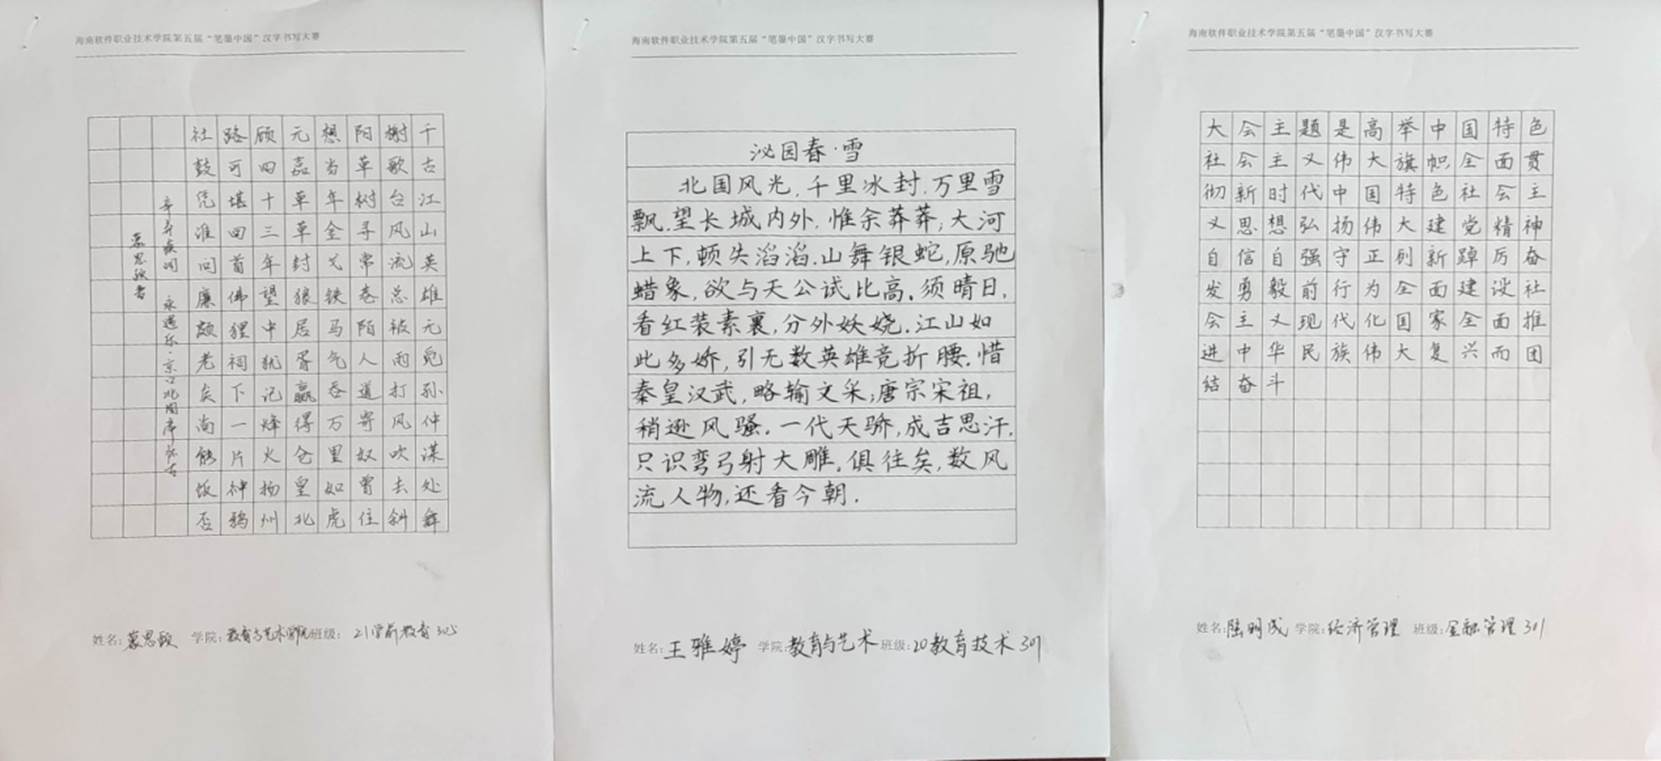 海南软件职业技术学院第五届“笔墨中国”汉字书写大赛
千古江山英雄无觅孙仲谋处舞
榭歌台风流总被雨打风吹去斜
阳草树寻常巷陌人道寄奴曾住
想当年金戈铁马气吞万里如虎
元嘉草草封狼居胥赢得仓皇北
顾四十三年望中犹记烽火扬州
路可堪回首佛狸祠下一片神鸦
社鼓凭谁问廉颇老矣尚能饭否
辛弃疾词 永遇乐·京口北固亭怀古
慕思敏书
姓名:慕思敏 学院:教育与艺术学院 班级:21学前教育305
海南软件职业技术学院第五届“笔墨中国”汉字书写大赛
沁园春·雪
北国风光,千里冰封,万里雪
飘.望长城内外,惟余莽莽;大河
上下,顿失滔滔.山舞银蛇,原驰
蜡象,欲与天公试比高.须晴日,
看红装素裹,分外妖娆.江山如
此多娇,引无数英雄竞折腰.惜
秦皇汉武,略输文采;唐宗宋祖,
稍逊风骚.一代天骄,成吉思汗,
只识弯弓射大雕.俱往矣,数风
流人物,还看今朝.
姓名:王雅婷 学院:教育与艺术 班级:20教育技术301
海南软件职业技术学院第五届“笔墨中国”汉字书写大赛
大会主题是高举中国特色
社会主义伟大旗帜,全面贯
彻新时代中国特色社会主
义思想弘扬伟大建党精神
自信自强守正创新踔厉奋
发勇毅前行为全面建设社
会主义现代化国家全面推
进中华民族伟大复兴而团
结奋斗
姓名:陆明成 学院:经济管理 班级:金融管理301